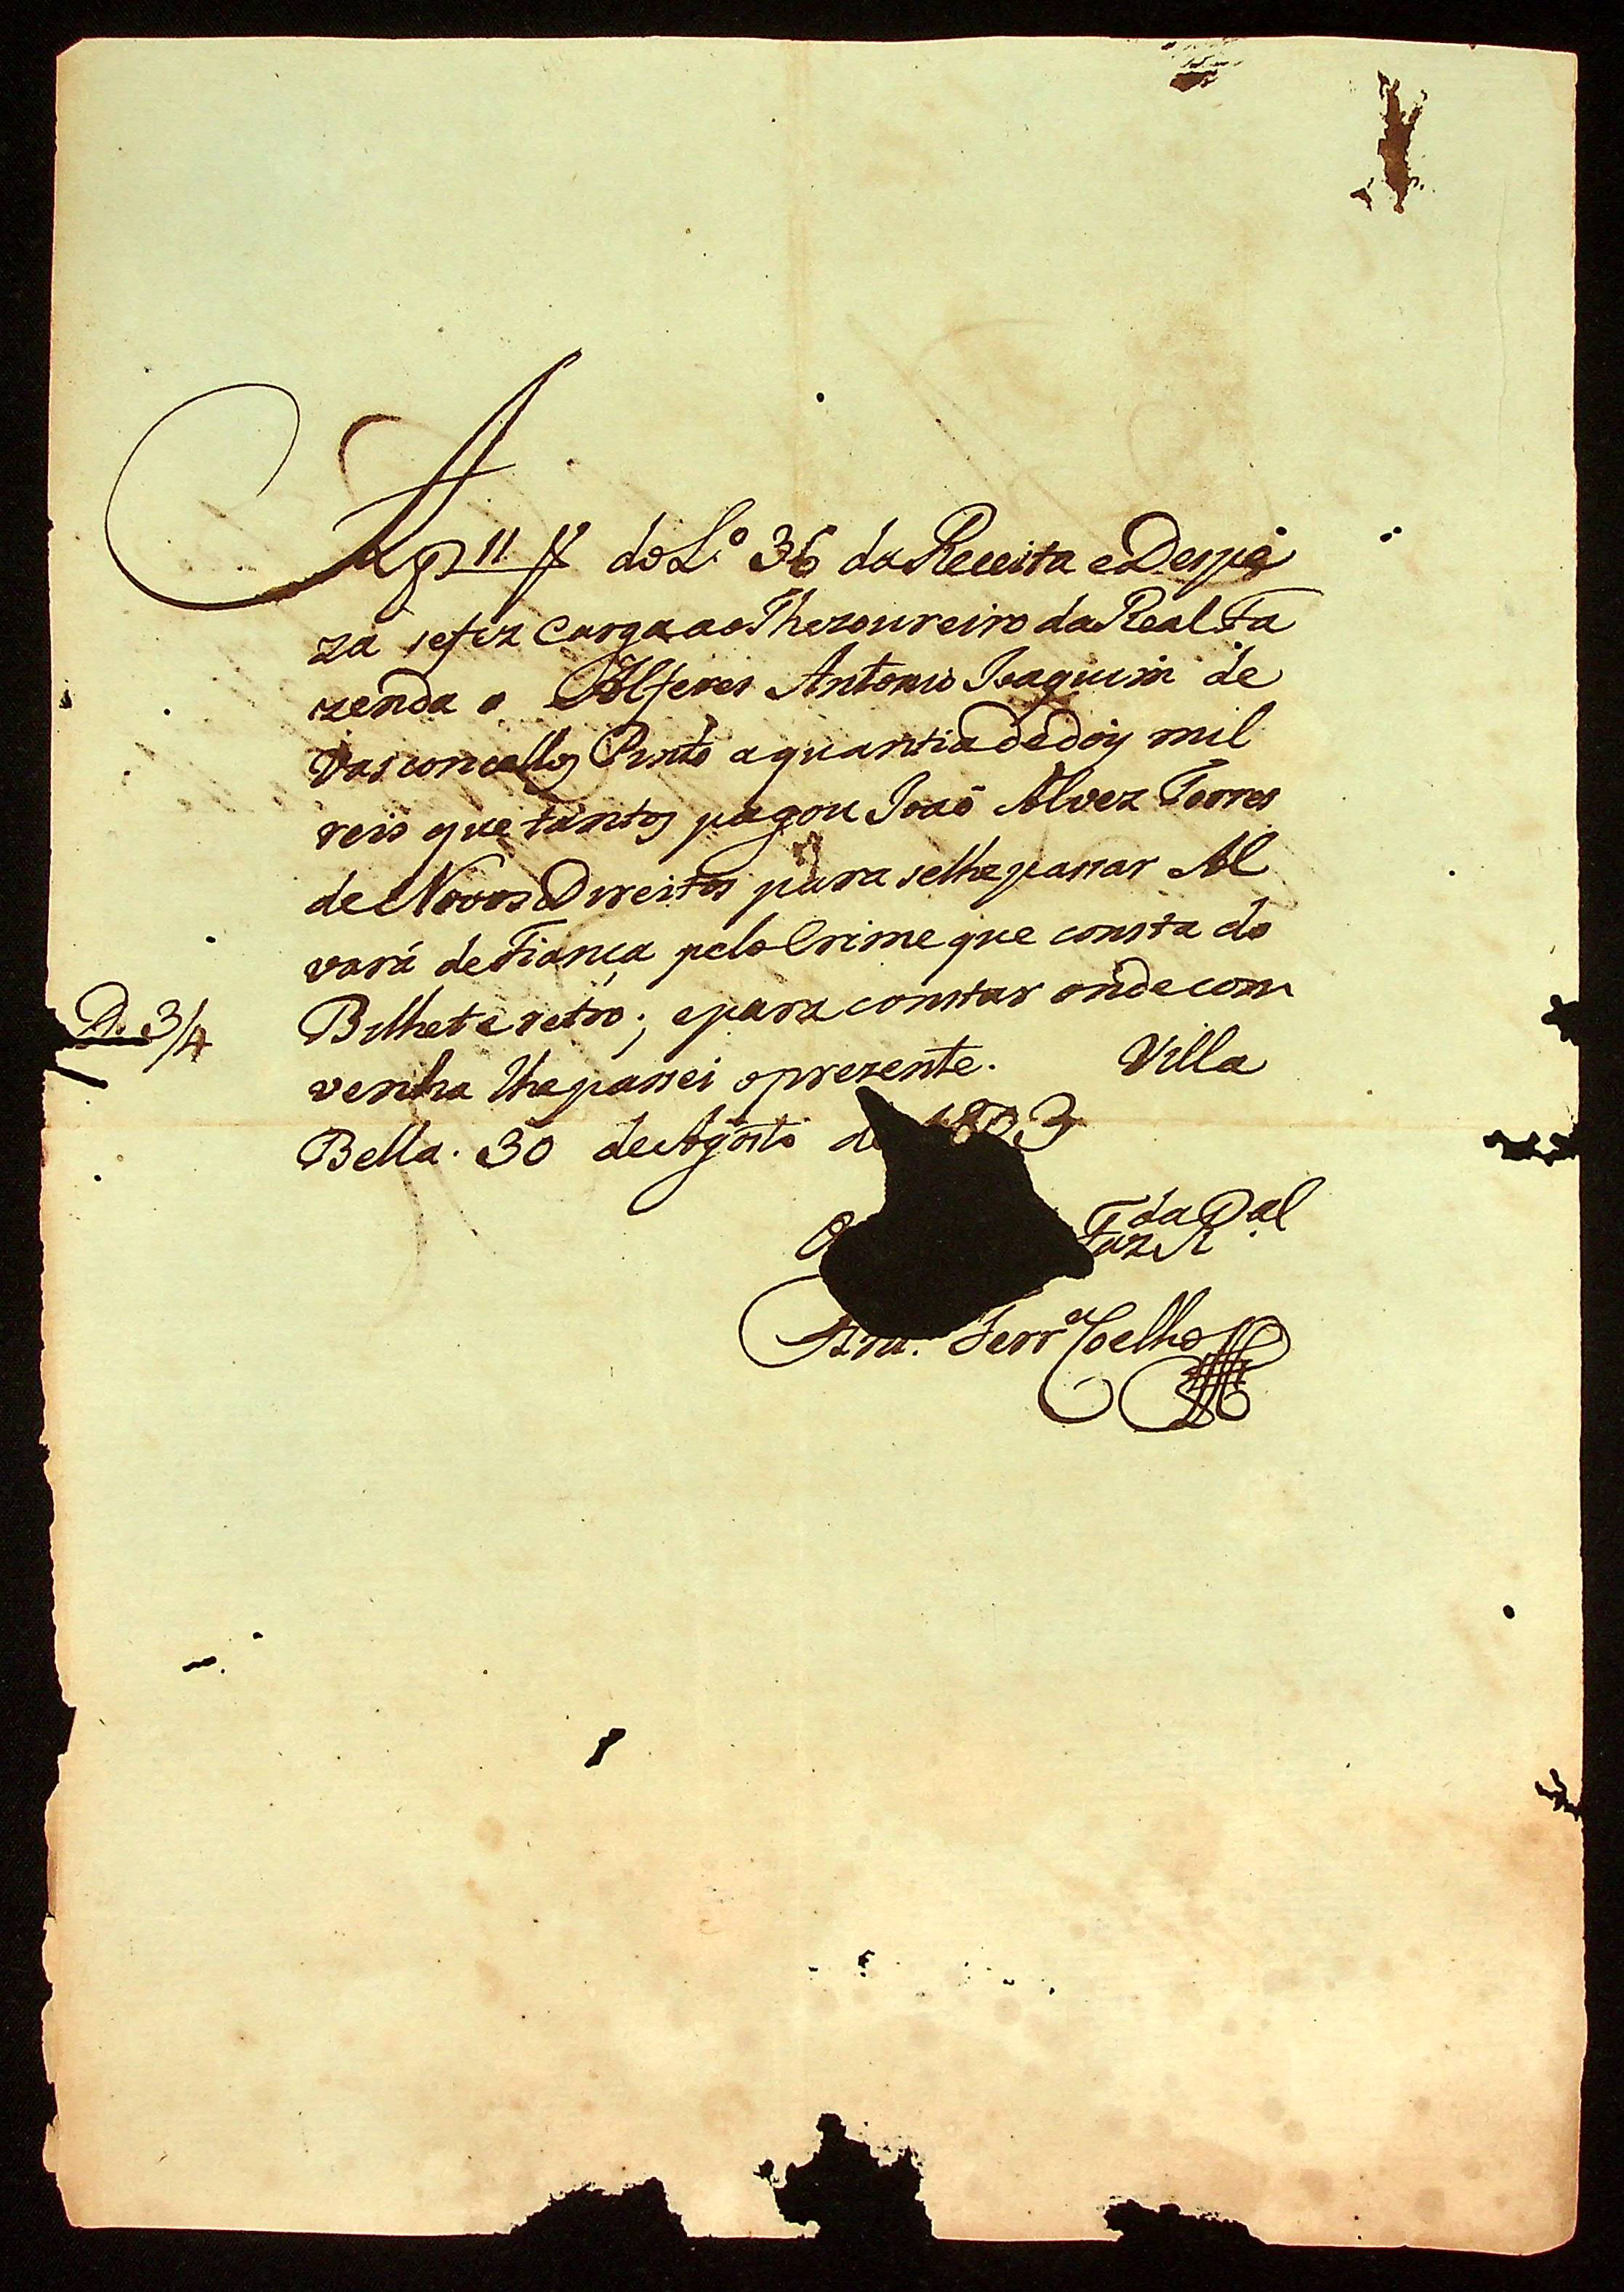 A f 11 V do L.º 36 da Receita e Despe
za se fez Carga ao Thezoureiro da Real Fa
zenda o Alferes Antonio Joaquim de
Vasconcellos Pinto a quantia de dois mil
reis que tantos pagou Joaõ Alvez Torres
de Novos Direitos para se lhe passar Al
vará de Fiança pelo Crime que consta do
D. 3/4
Bilhete retro; e para constar onde com
venha lhe passei o prezente. Villa
Bella. 30 de Agosto de 1803
O Faz.da R.al
Ferr.a Coelho